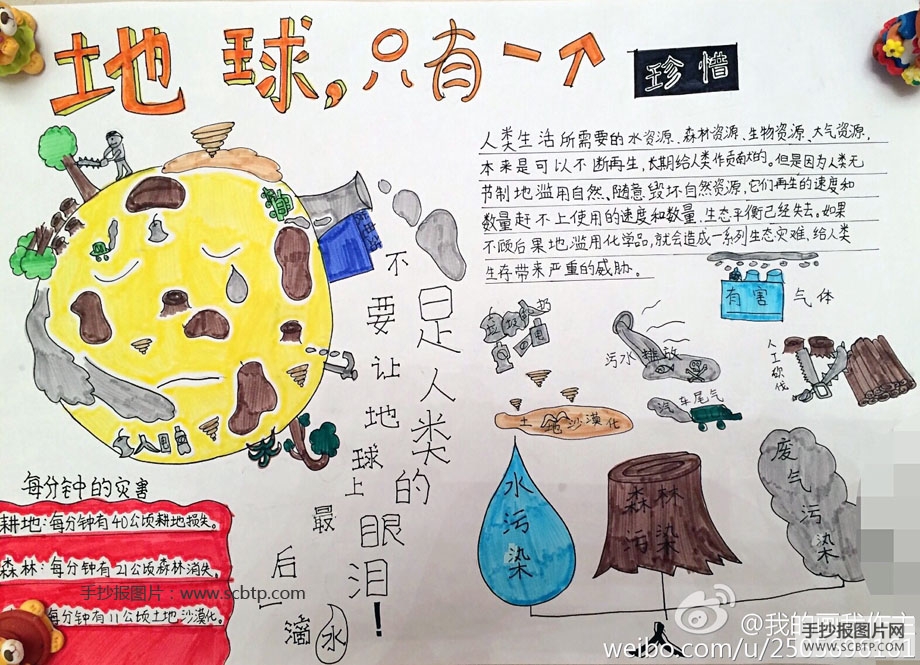 地球，只有一个
珍惜
人类生活所需要的水资源、森林资源、生物资源、大气资源，
本来是可以不断再生，长期给人类作贡献的。但是因为人类无
节制地滥用自然、随意毁坏自然资源，它们再生的速度和
数量赶不上使用的速度和数量，生态平衡已经失去。如果
不顾后果地滥用化学品，就会造成一系列生态灾难，给人类
生存带来严重的威胁。
不要让地球上最后一滴水
是人类的眼泪！
有害气体
垃圾
污水排放
人工砍伐
汽车尾气
土地沙漠化
水污染
森林污染
废气污染
每分钟的灾害
耕地：每分钟有40公顷耕地损失。
森林：每分钟有21公顷森林消失。
每分钟有11公顷土地沙漠化。
手抄报图片：www.scbtp.com
@我的画我作主
手抄报图片网
WWW.SCBTP.COM